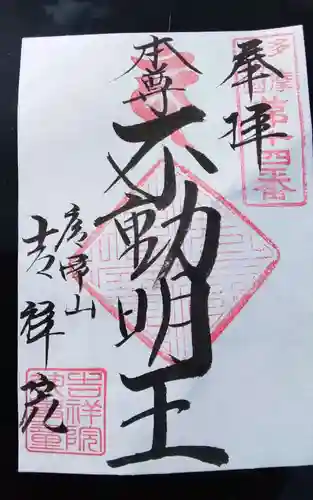 奉拝
多摩
第十四番
本尊
不動明王
吉祥院
吉祥院